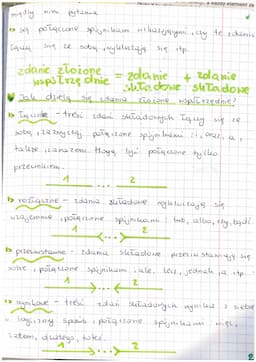 między nimi pytania.
są połączone spójnikami wskazującymi, czy te zdania
łączą się ze sobą, wykluczają się itp.
zdanie złożone współrzędnie = zdanie składowe + zdanie składowe
Jak dzielą się zdania złożone współrzędnie?
łączne - treści zdań składowych łączą się ze
sobą, są połączone spójnikami: i, oraz, a,
także, zarazem. Mogą być połączone tylko
przecinkiem.
1 2
rozłączne - zdania składowe wykluczają się
wzajemnie, połączone spójnikami: lub, albo, czy, bądź
1 2
przeciwstawne - zdania składowe przeciwstawiają się
sobie, połączone spójnikami: ale, lecz, jednak, a itp.
1 2
wynikowe - treści zdań składowych wynika z siebie
w logiczny sposób, połączone spójnikami: więc,
zatem, dlatego, toteż.
1 2